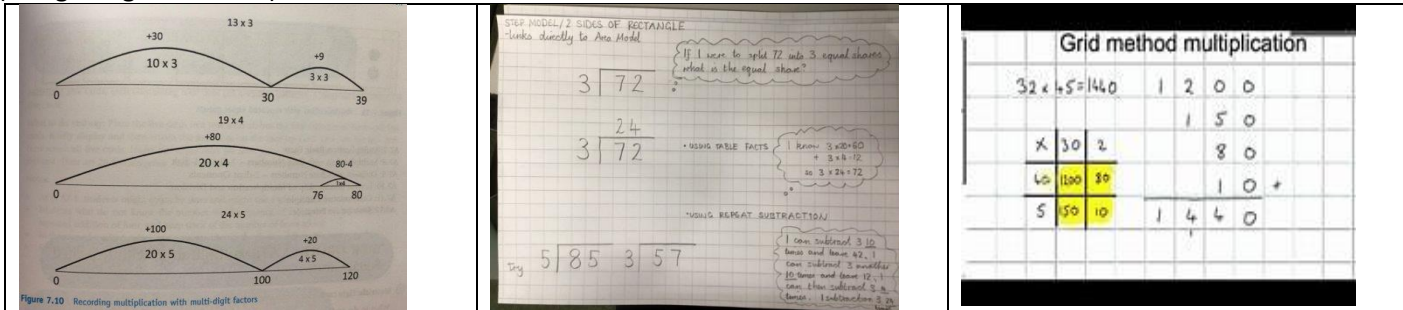 13 x 3
+30
10 x 3
+9
3 x 3
0
30
39
19 x 4
+80
20 x 4
80-4
1x4
0
76
80
24 x 5
+100
20 x 5
+20
4 x 5
0
100
120
Figure 7.10 Recording multiplication with multi-digit factors
STEP MODEL/2 SIDES OF RECTANGLE
-links directly to Area Model
If I were to split 72 into 3 equal shares
what is the equal share?
3 72
24
3 72
• USING TABLE FACTS
I know 3x20=60
+ 3x4=12
so 3 x 24 = 72
•USING REPEAT SUBTRACTION
I can subtract 3 10
times and leave 42, I
can subtract 3 another
10 times and leave 12, I
can then subtract 3 4
times. I subtracted 3 24
Try 5 85 3 57
Grid method multiplication
32 x 45 = 1440
1 2 0 0
1 5 0
8 0
1 0 +
1 4 4 0
1
X 30 2
40 1200 80
5 150 10